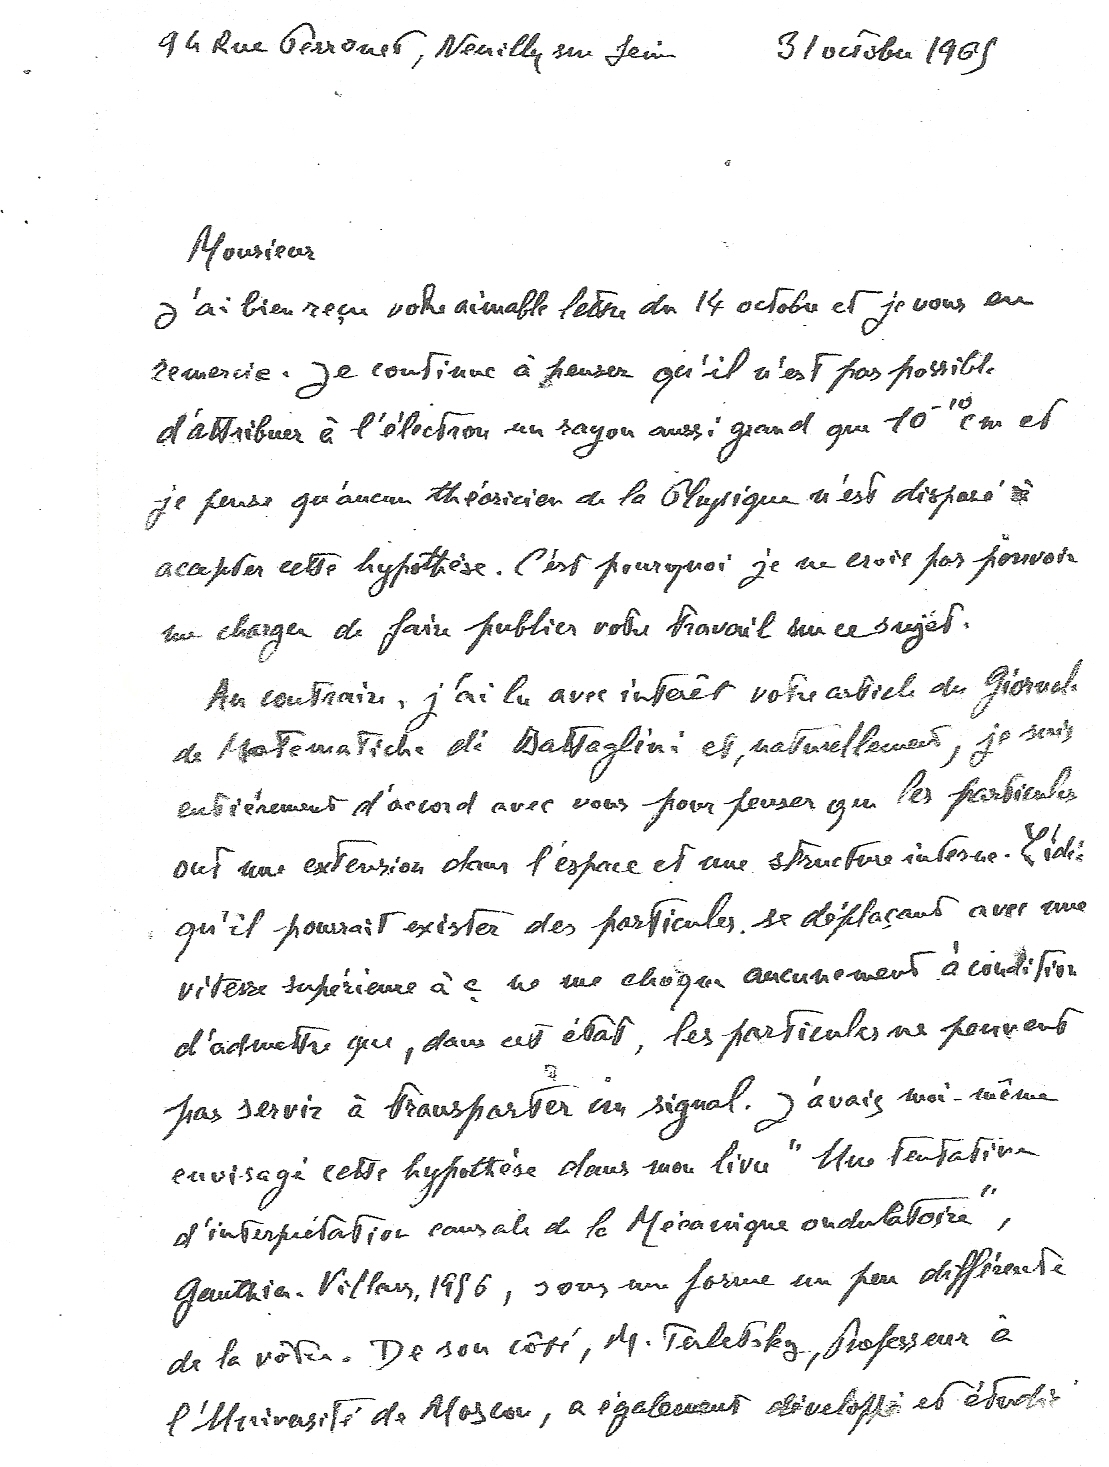 94 Rue Perronet, Neuilly sur Seine 31 octobre 1965
Monsieur
J'ai bien reçu votre aimable lettre du 14 octobre et je vous en
remercie. Je continue à penser qu'il n'est pas possible
d'attribuer à l'électron un rayon aussi grand que 10⁻¹⁰ cm et
je pense qu'aucun théoricien de la Physique n'est disposé à
accepter cette hypothèse. C'est pourquoi je ne crois pas pouvoir
me charger de faire publier votre travail sur ce sujet.
Au contraire, j'ai lu avec intérêt votre article du Giornale
de Matematiche di Battaglini et, naturellement, je suis
entièrement d'accord avec vous pour penser que les particules
ont une extension dans l'espace et une structure interne. L'idée
qu'il pourrait exister des particules se déplaçant avec une
vitesse supérieure à c ne me choque aucunement à condition
d'admettre que, dans cet état, les particules ne peuvent
pas servir à transporter un signal. J'avais moi-même
envisagé cette hypothèse dans mon livre "Une tentative
d'interprétation causale de la Mécanique ondulatoire",
Gauthier-Villars, 1956, sous une forme un peu différente
de la vôtre. De son côté, M. Terletsky, Professeur à
l'Université de Moscou, a également développé et étudié